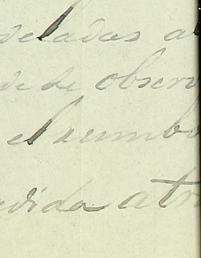 deladas a
de se observ
el rumbo
edida atr